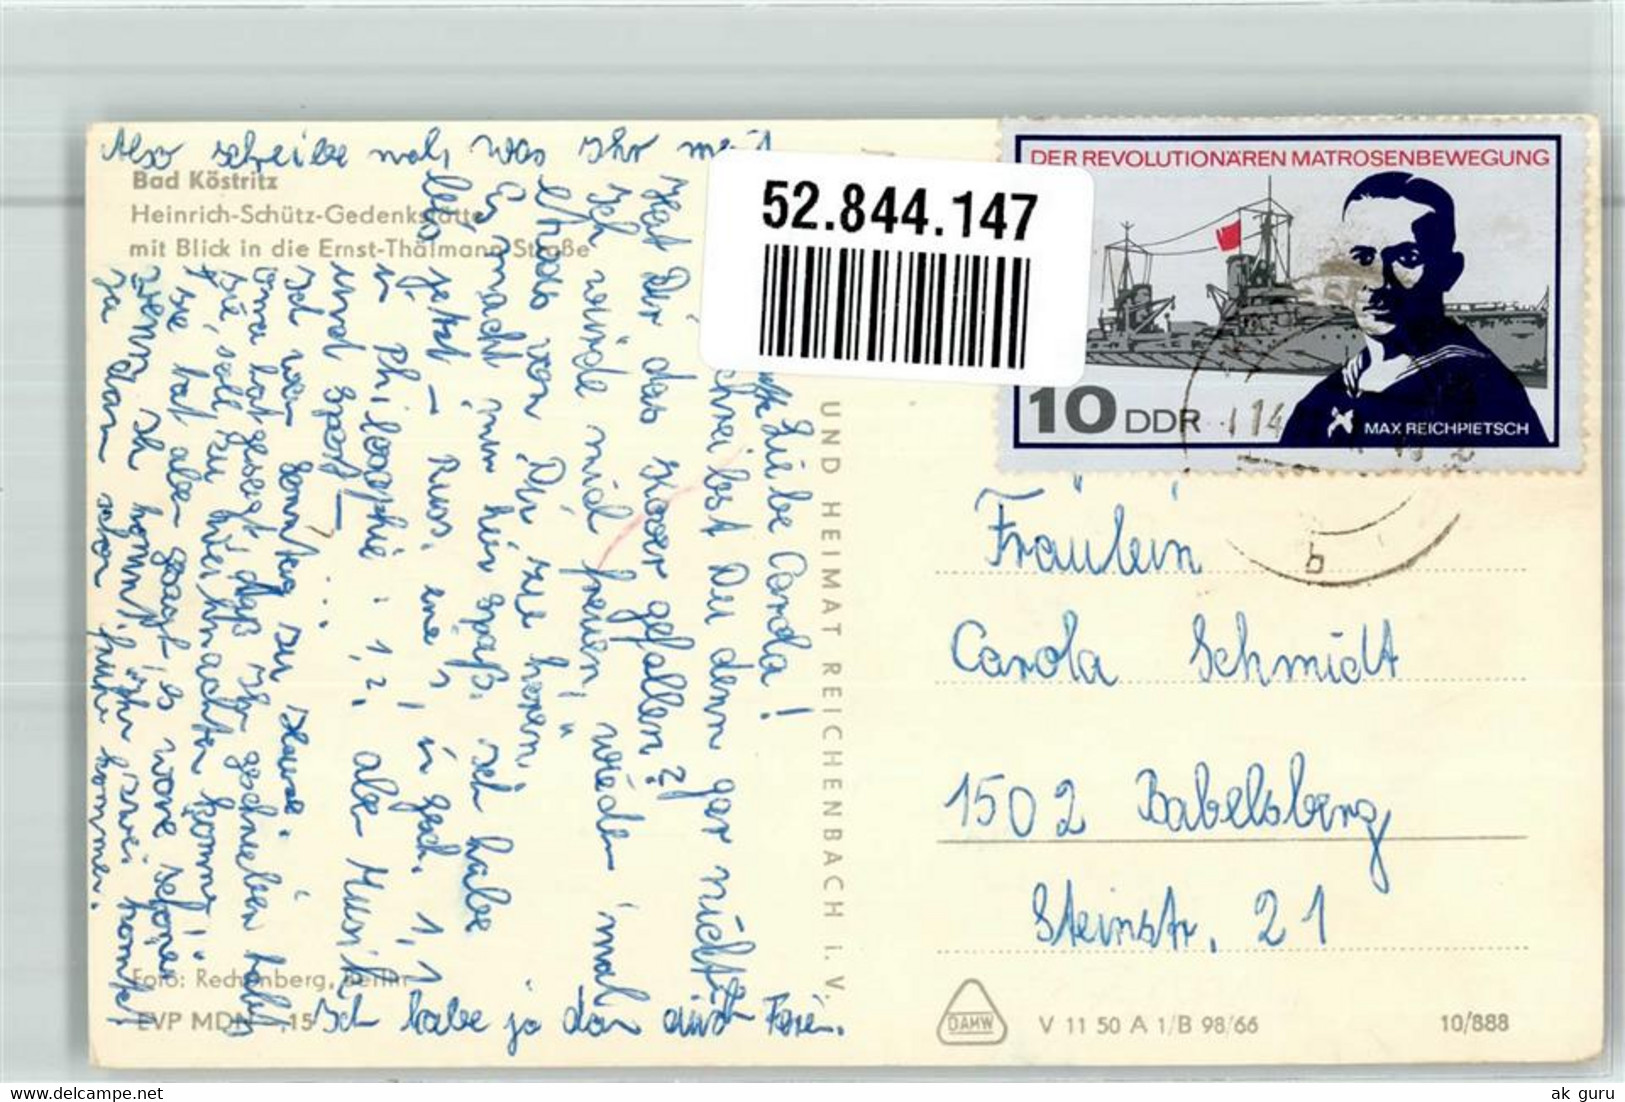 Also schreibe mal, was Ihr
Bad Köstritz
Heinrich-Schütz-Gedenkstätte
mit Blick in die Ernst-Thälmann-Straße
52.844.147
DER REVOLUTIONÄREN MATROSENBEWEGUNG
10 DDR
MAX REICHPIETSCH
14
b
Liebe Carola!
schreibst Du denn gar nicht?
Hat Dir das gefallen?
Ich würde mich freuen, wieder 'mal
etwas von Dir zu hören.
Es macht mir hier Spaß. Ich habe
jetzt - Russ. eine 1, in Gesch. 1,1
in Philosophie: 1,2, aber Musik
und Sport - ...
Ich war Sonntag zu Hause.
Oma hat gesagt, daß Ihr geschrieben habt
sie soll zu Weihnachten kommen!
sie hat aber gesagt, es wäre schöner
wenn Ihr zwei kommt.
Ja dann schon kommen.
Ich habe ja dann auch Ferien.
UND HEIMAT REICHENBACH i. V.
Foto: Rechenberg, Berlin
EVP MDN ,15
Fräulein
Carola Schmidt
1502 Babelsberg
Steinstr. 21
DAMW
V 11 50 A 1/B 98/66
10/888
ak guru